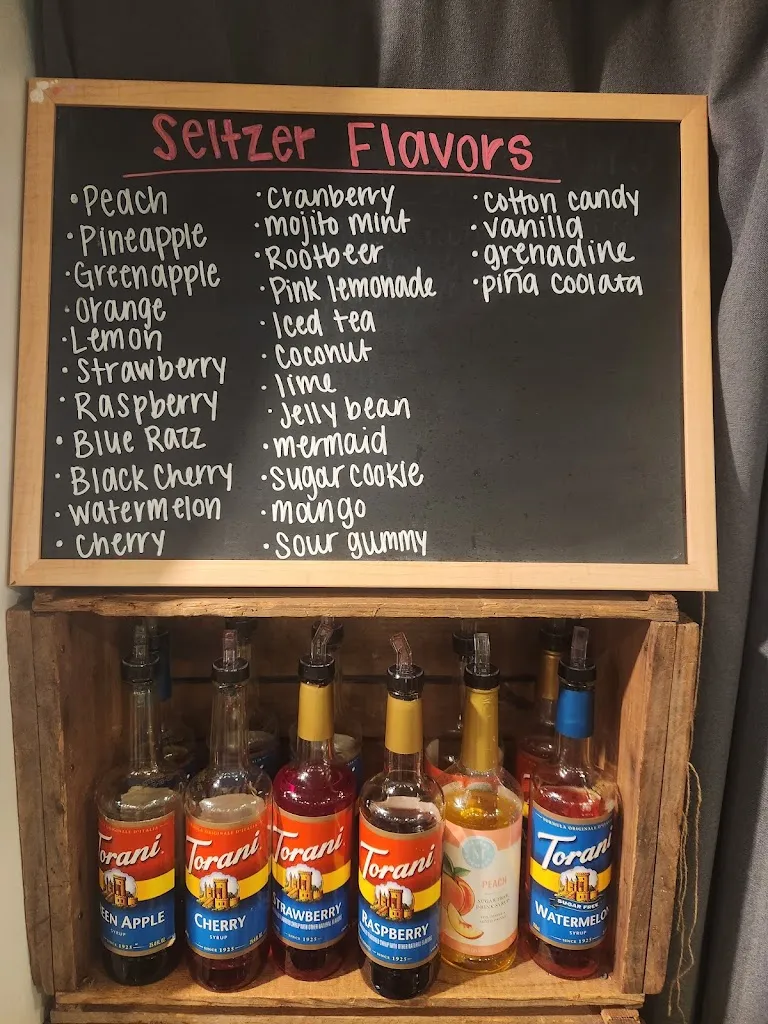 Seltzer Flavors
• Peach
• Pineapple
• Green apple
• Orange
• Lemon
• Strawberry
• Raspberry
• Blue Razz
• Black Cherry
• watermelon
• cherry
• cranberry
• mojito mint
• Rootbeer
• Pink lemonade
• Iced tea
• coconut
• lime
• Jelly bean
• mermaid
• sugar cookie
• mango
• sour gummy
• cotton candy
• vanilla
• grenadine
• piña coolata
Torani
EEN APPLE
SYRUP
SINCE 1925
Torani
CHERRY
SYRUP
SINCE 1925
Torani
STRAWBERRY
SINCE 1925
Torani
RASPBERRY
SINCE 1925
PEACH
SUGAR FREE
DRINK SYRUP
Torani
SUGAR FREE
WATERMELON
SYRUP
SINCE 1925